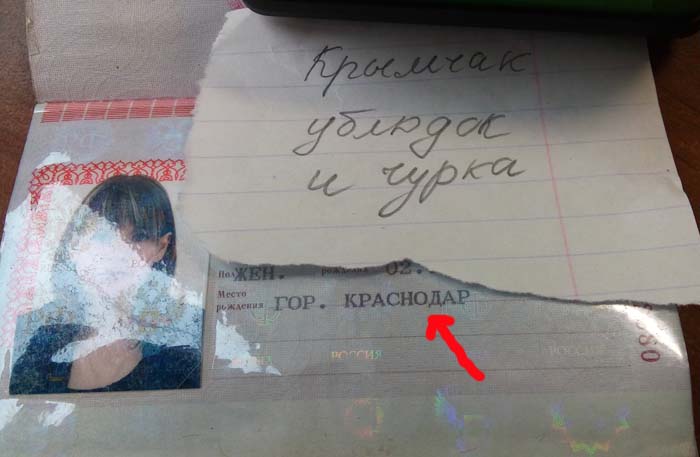 Крымчак
ублюдок
и чурка
Пол ЖЕН. рождения 02.
Место
рождения ГОР. КРАСНОДАР
РОССИЯ РОССИЯ